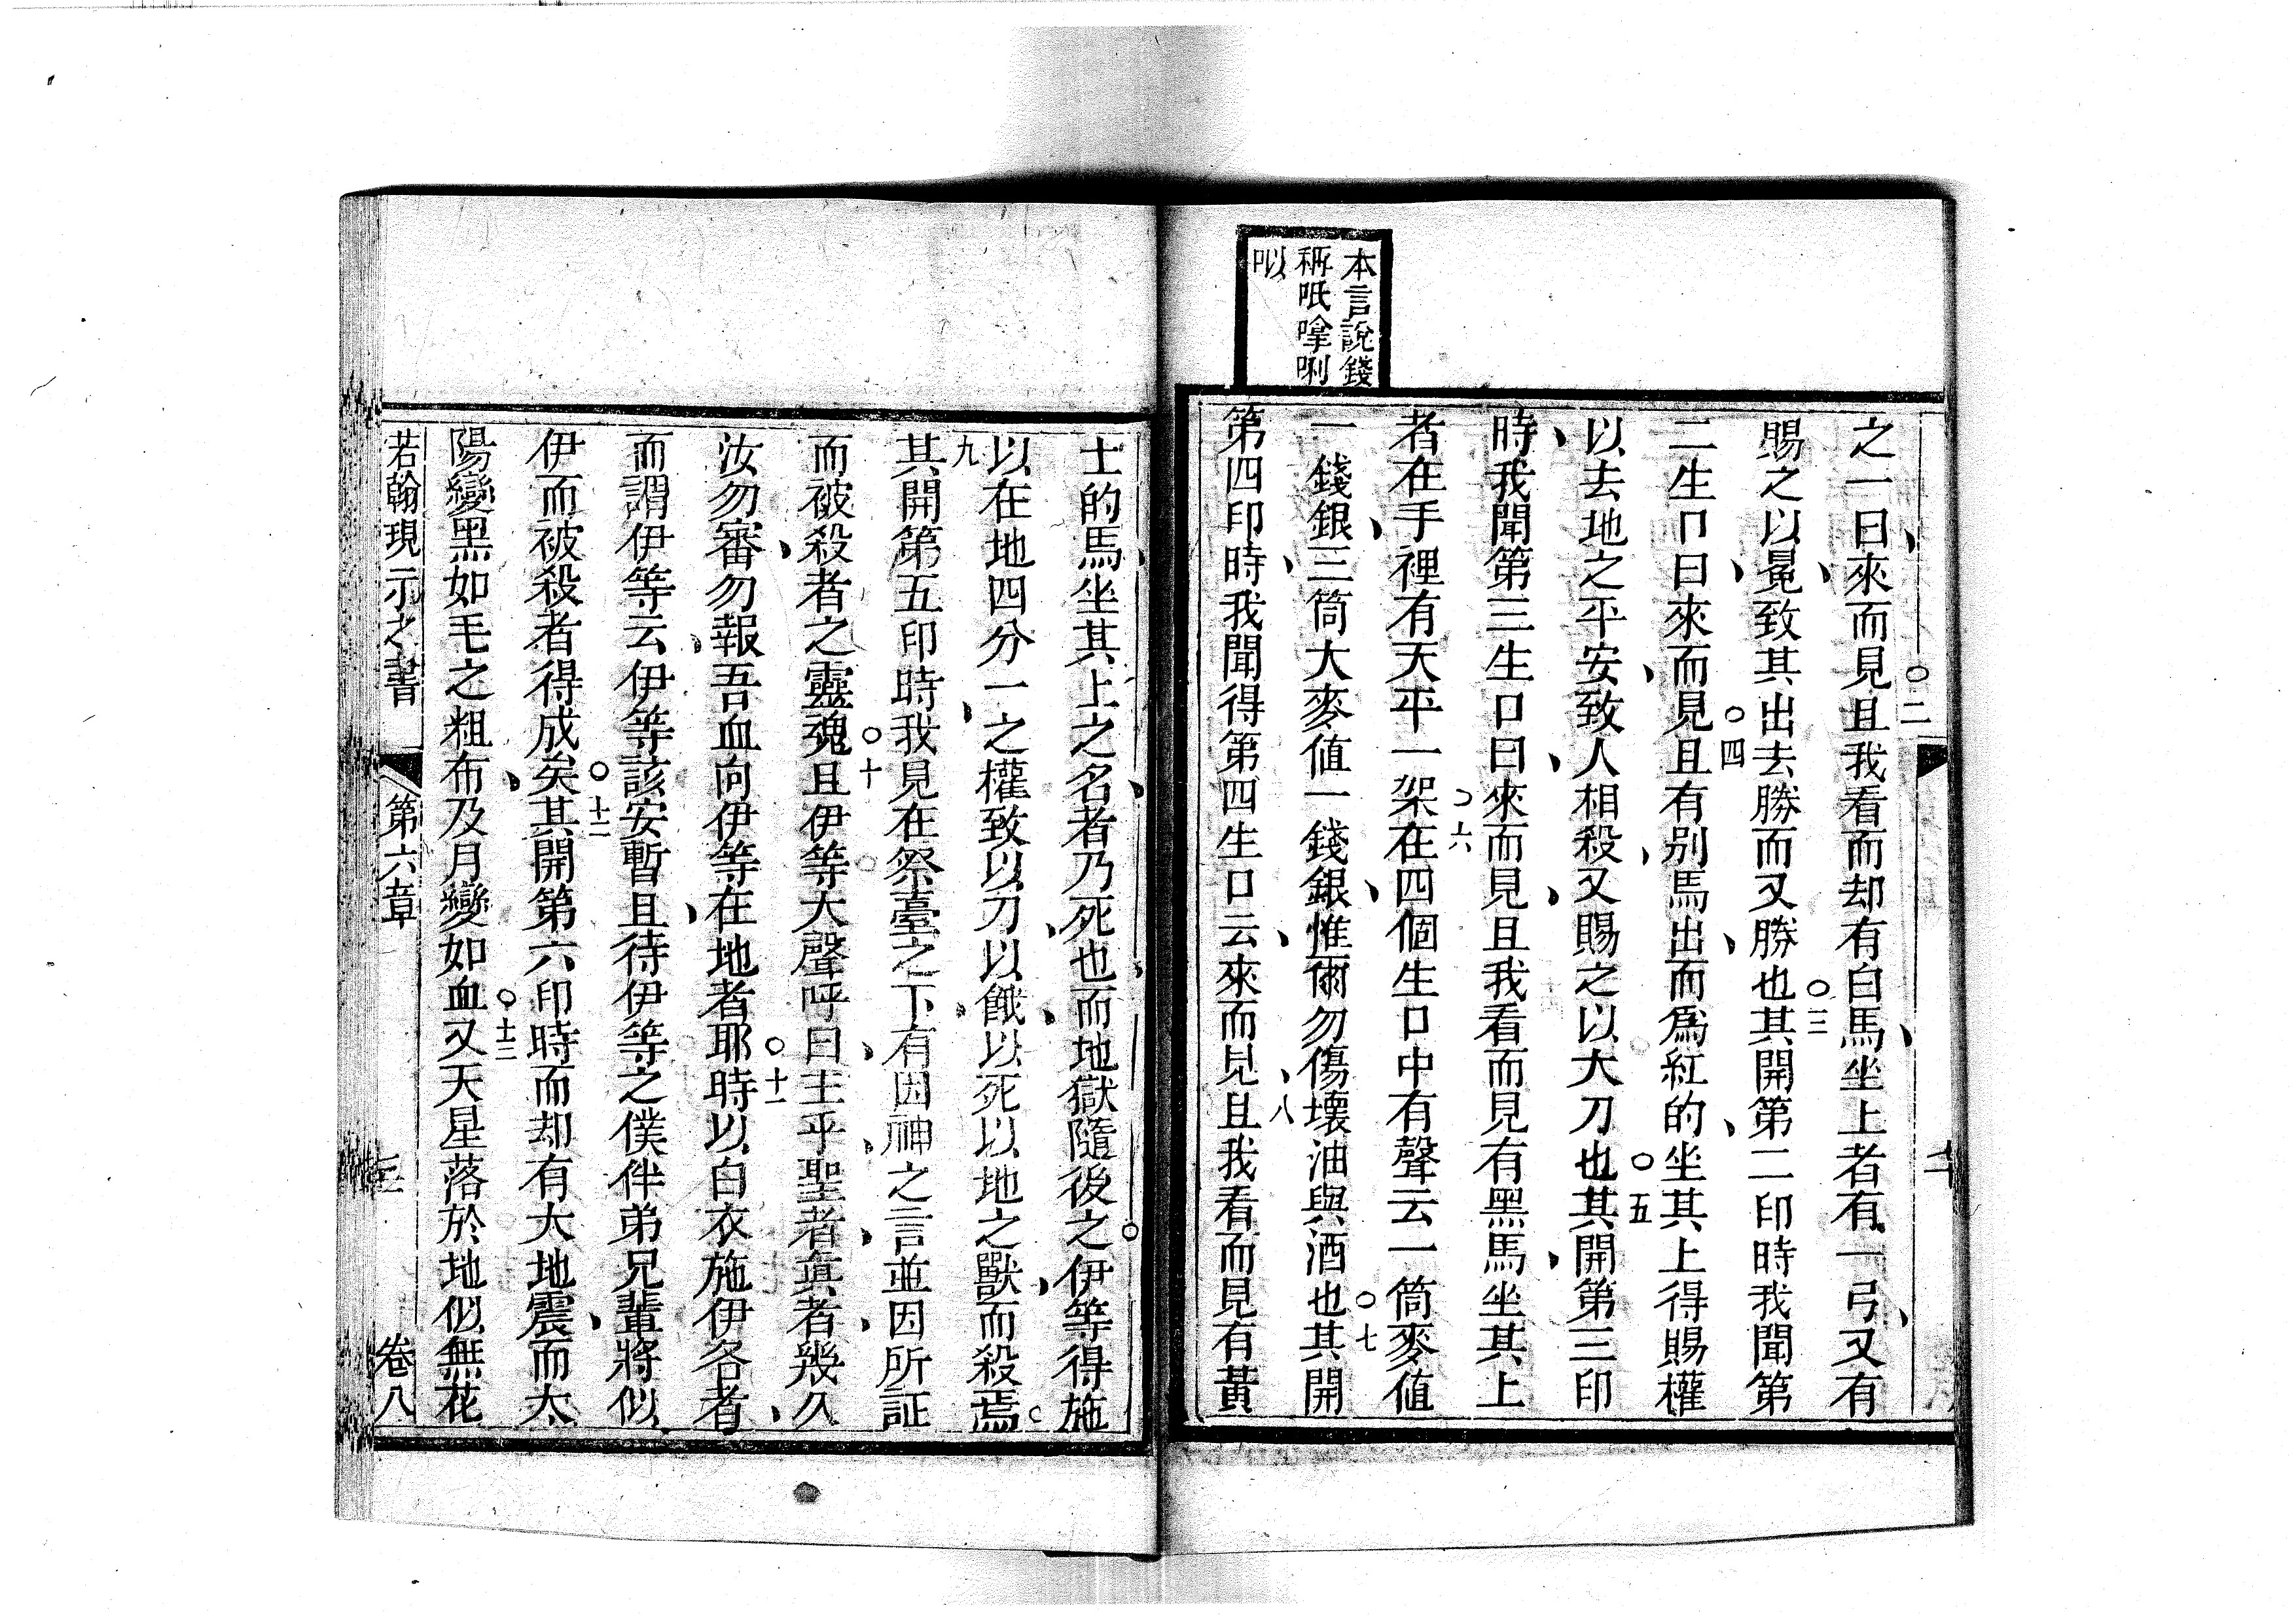 本言說錢
稱呧嗱唎
㕥
之一曰來而見且我看而却有白馬坐上者有一弓又有
賜之以冕致其出去勝而又勝也其開第二印時我聞第
二生口曰來而見且有别馬出而爲紅的坐其上得賜權
以去地之平安致人相殺又賜之以大刀也其開第三印
時我聞第三生口曰來而見且我看而見有黑馬坐其上
者在手裡有天平一架在四個生口中有聲云一筒麥值
一錢銀三筒大麥值一錢銀惟爾勿傷壞油與酒也其開
第四印時我聞得第四生口云來而見且我看而見有黃
二
三
四
五
六
七
八
士的馬坐其上之名者乃死也而地獄隨後之伊等得施
以在地四分一之權致以刀以餓以死以地之獸而殺焉
其開第五印時我見在祭臺之下有因神之言並因所証
而被殺者之靈魂且伊等大聲呼曰主乎聖者眞者幾久
汝勿審勿報吾血向伊等在地者耶時以白衣施伊各者
而謂伊等云伊等該安暫且待伊等之僕伴弟兄輩將似
伊而被殺者得成矣其開第六印時而却有大地震而太
陽變黑如毛之粗布及月變如血又天星落於地似無花
九
十
十一
十二
十三
若翰現示之書 第六章 卷八